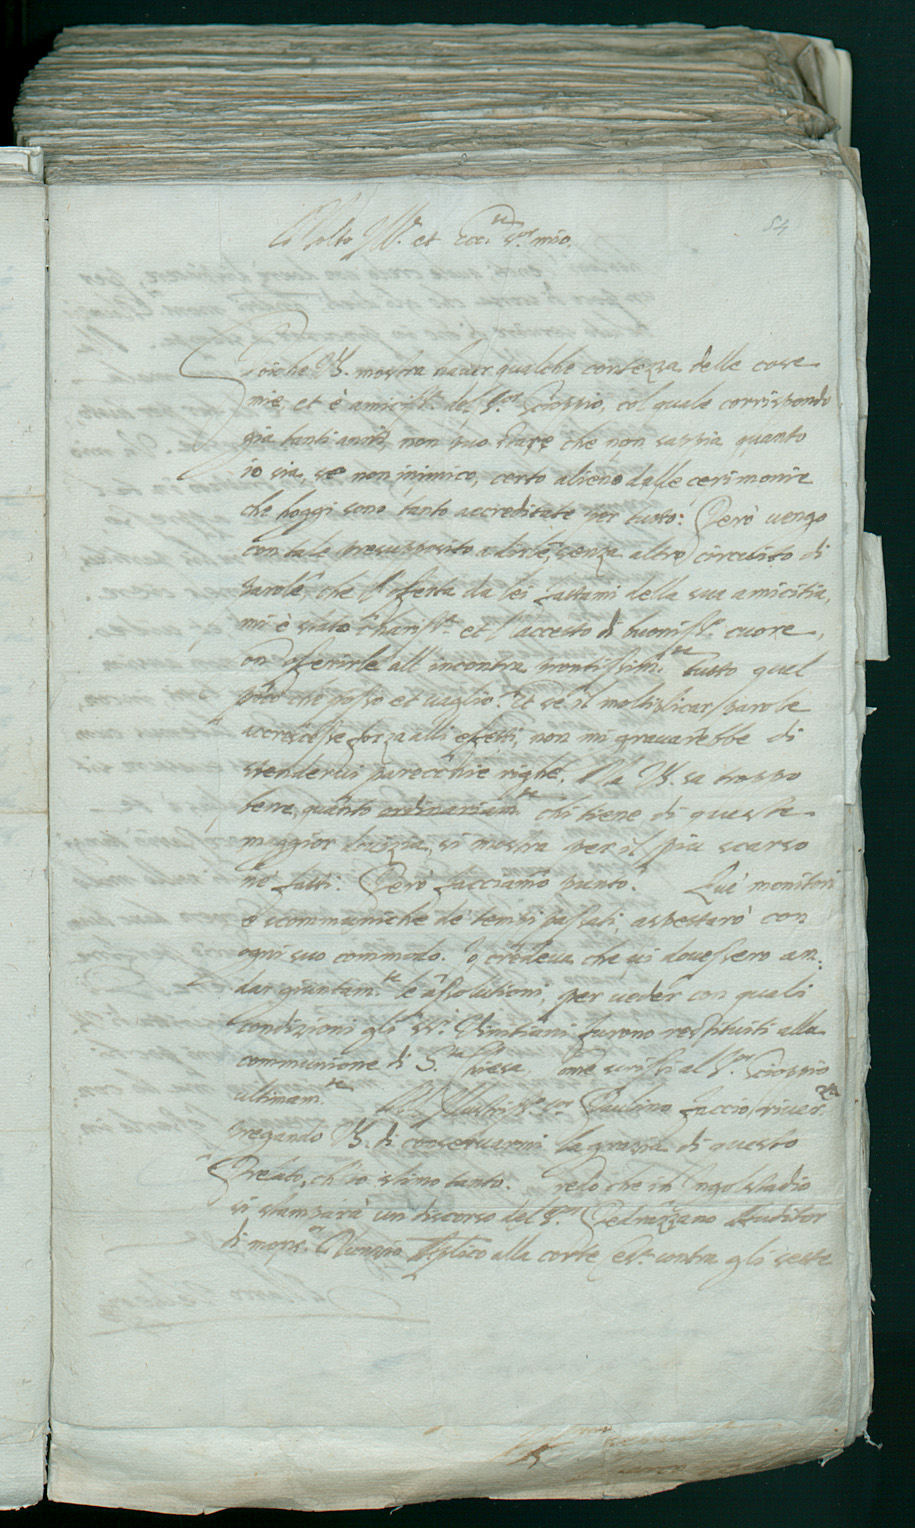 Molto Ill.re et Ecc.te S.or mio.
54
Poiche V.S. mostra haver qualche contezza delle cose
mie, et è amiciss.o del S.or Scioppio, col quale corrispondo
già tanti anni, non può stare che non sappia quanto
io sia, se non inimico, certo alieno dalle cerimonie
che hoggi sono tanto accreditate per tutto: Però vengo
con tale presupposito a dirle, senza altro circuito di
parole, che l'offerta da lei fattami della sua amicitia,
mi è stata chariss.a et l'accetto di buoniss.o cuore,
con offerirle all'incontra prontissim.te tutto quel
poco che posso et vaglio. Et se il moltiplicar parole
accrescesse forza alli effetti, non mi gravarebbe di
stendervi parecchie righe. Ma V.S. sa troppo
bene, quanto ordinariam.te chi tiene di queste
maggior douizia, si mostra per il più scarso
ne' fatti: Però facciamo punto. Que' monitorii
e scommuniche de' tempi passati, aspettarò con
ogni suo commodo. Io credeva che vi dovessero an:
dar giuntam.te le assolutioni, per veder con quali
condizioni gli SS.ri Vinitiani furono restituiti alla
communione di S.ta Chiesa, come scrissi al S.or Scioppio
ultimam.te Al Illustriss.o S.or Paulino faccio river.za
pregando V.S. di conservarmi la grazia di questo
Prelato, ch'io stimo tanto. Credo che in Ingolstadio
si stamparà un discorso del S.or Pedrezzano Auditor
di mons.or Nunzio Ap.lico alla corte Ces.a contra gli sette